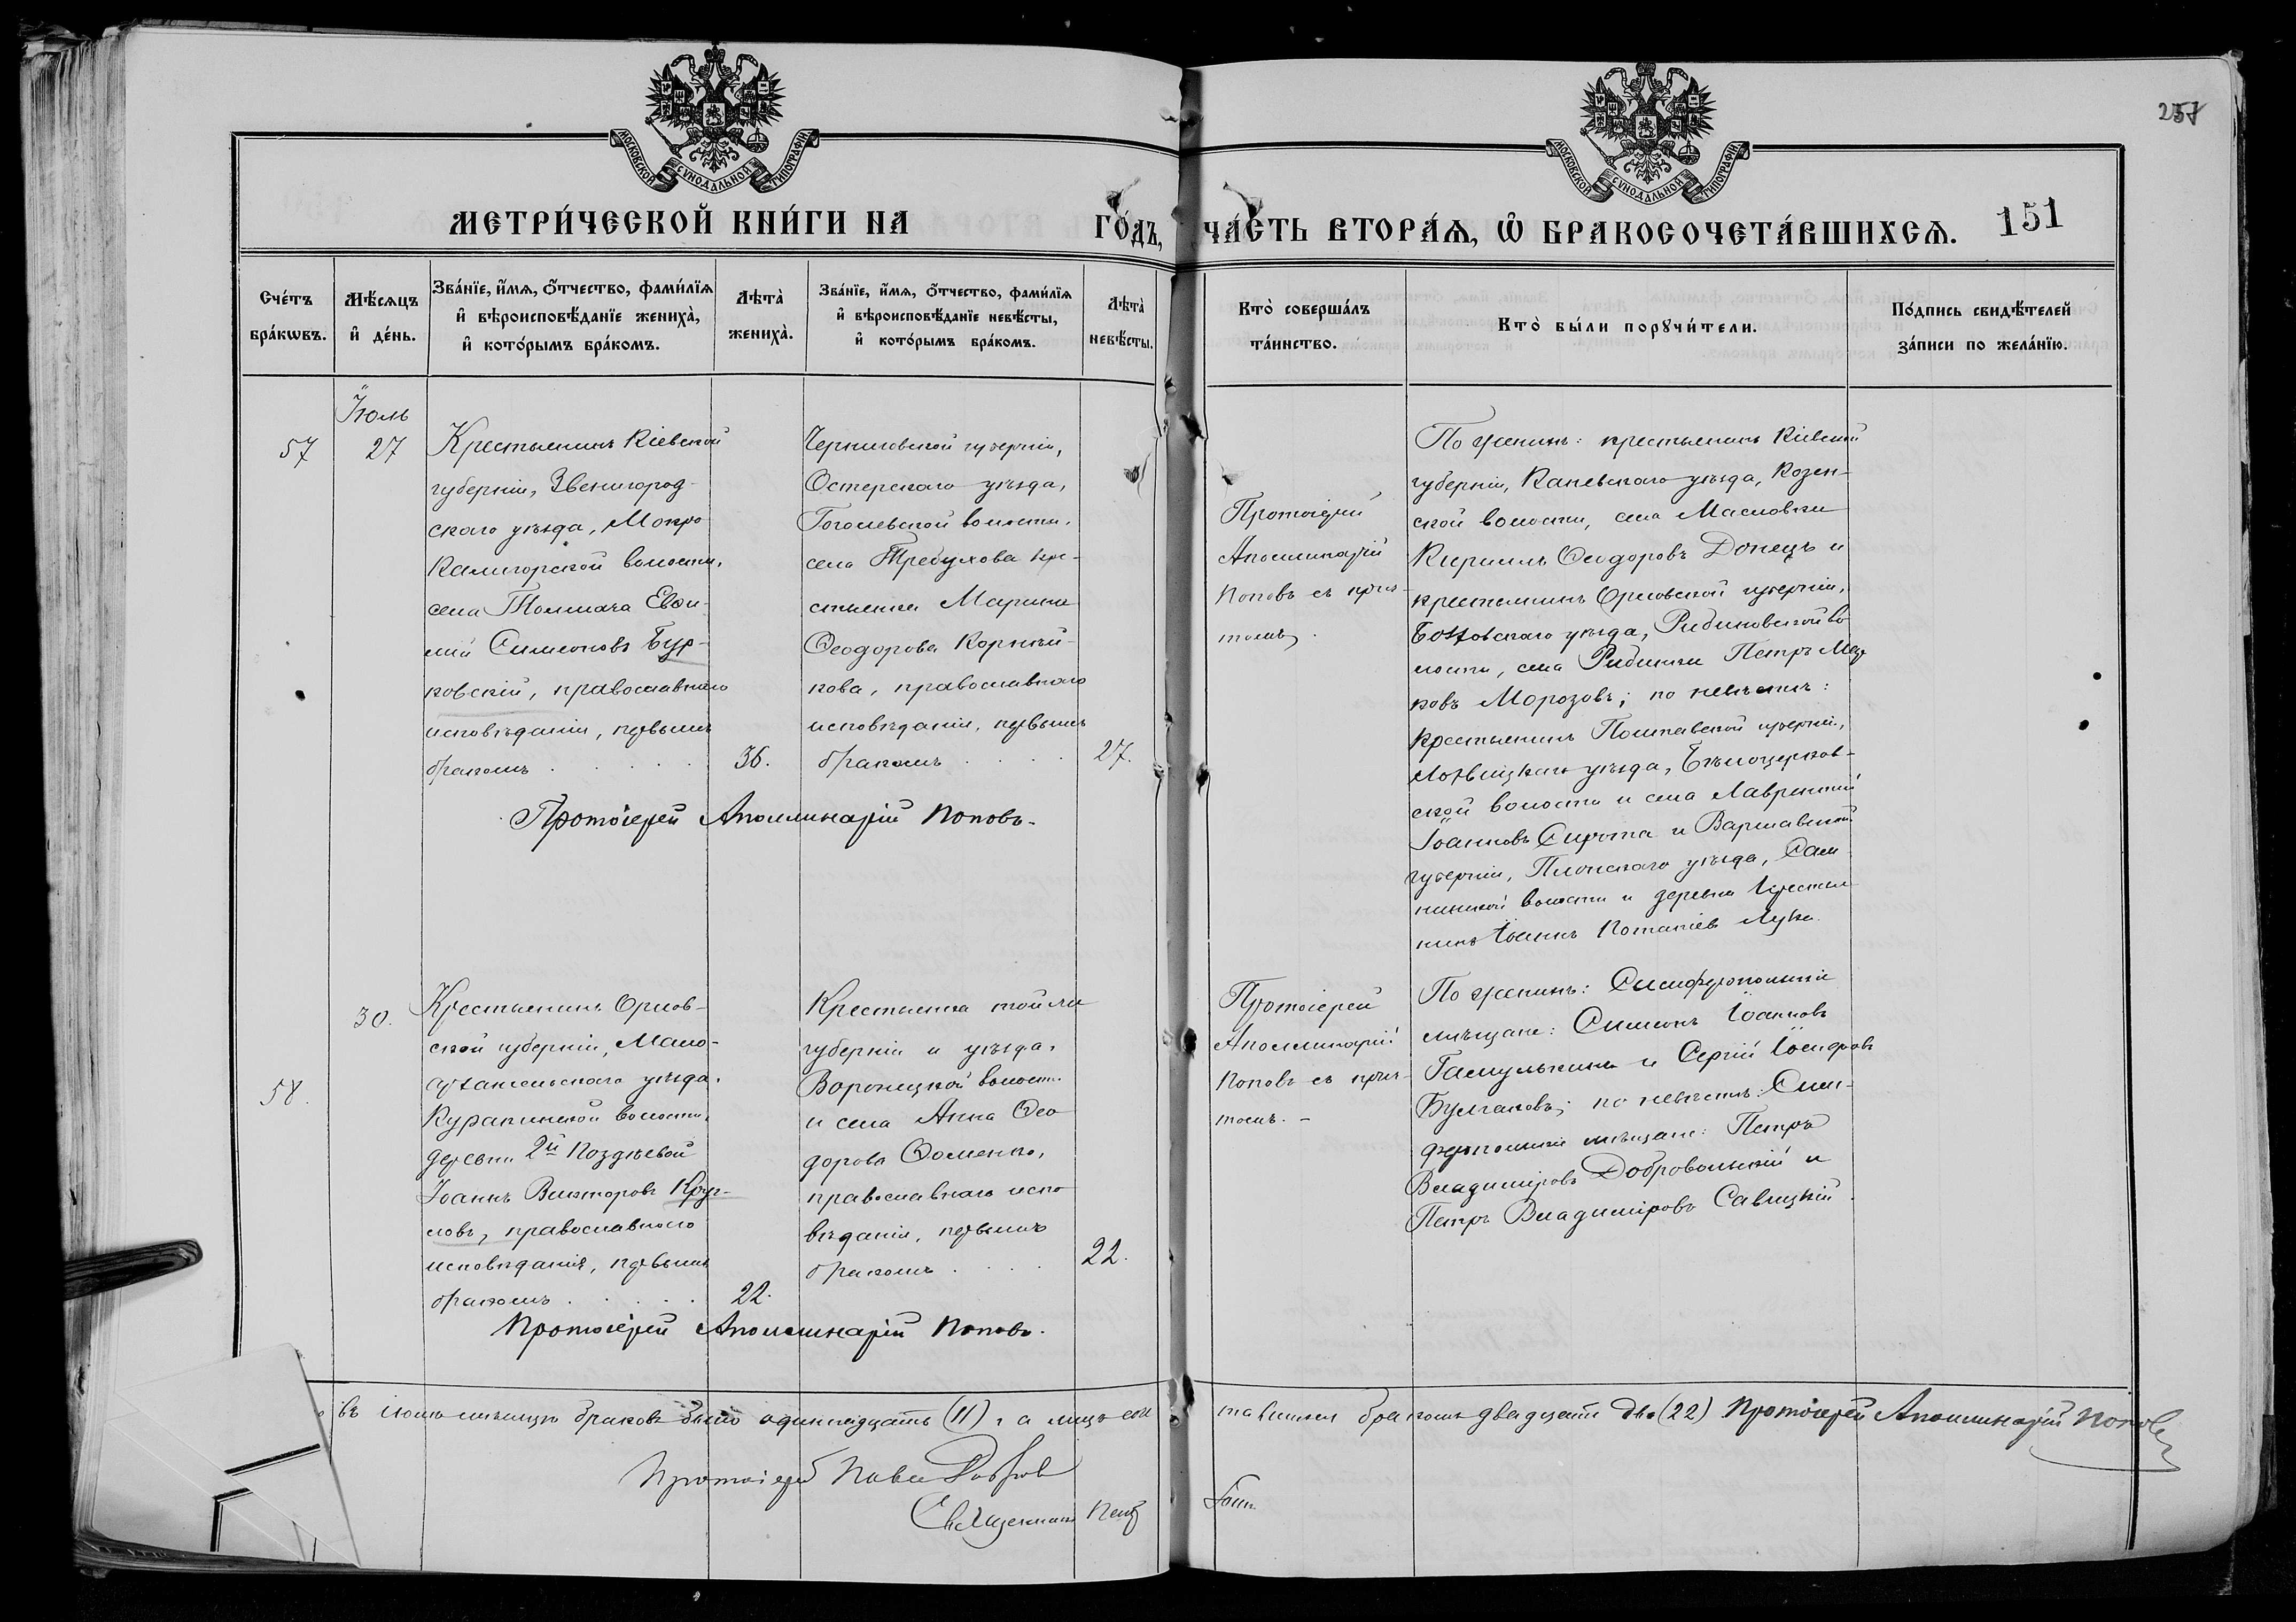 257
МОСКОВСКОЙ СѴНОДАЛЬНОЙ ТИПОГРАФІИ
МОСКОВСКОЙ СѴНОДАЛЬНОЙ ТИПОГРАФІИ
МЕТРИ́ЧЕСКОЙ КНИ́ГИ НА ГО́ДЪ, ЧА́СТЬ ВТОРА́Ѧ, Ѽ БРАКОСОЧЕТА́ВШИХСѦ. 151
Сче́тъ
бра́кѡвъ.
Мѣ́сѧцъ
и҆ де́нь.
Зва́нїе, и҆́мѧ, ѻ҆́тчество, фами́лїѧ
и҆ вѣроисповѣ́данїе жениха̀,
и҆ кото́рымъ бра́комъ.
Лѣта̀
жениха̀.
Зва́нїе, и҆́мѧ, ѻ҆́тчество, фами́лїѧ
и҆ вѣроисповѣ́данїе невѣ́сты,
и҆ кото́рымъ бра́комъ.
Лѣта̀
невѣ́сты.
Кто̀ соверша́лъ
та́инство.
Кто̀ бы́ли порꙋчи́тели.
По́дпись свидѣ́телей
за́писи по жела́нїю.
Іюль
57
27
Крестьянинъ Кіевской
губерніи, Звенигород-
скаго уѣзда, Мокро
Калигорской волости,
села Толмача Евѳи-
мій Симеоновъ Бур-
ковскій, православнаго
исповѣданія, первымъ
бракомъ
36.
Черниговской губерніи,
Остерскаго уѣзда,
Гоголевской волости,
села Требухова кре-
стьянка Марина
Ѳеодорова Корнѣй-
кова, православнаго
исповѣданія, первымъ
бракомъ
27.
Протоіерей Аполлинарій Поповъ.
Протоіерей
Аполлинарій
Поповъ съ прич-
томъ.
По женихѣ: крестьянинъ Кіевской
губерніи, Каневскаго уѣзда, Козен-
ской волости, села Масловки
Кириллъ Ѳеодоровъ Донецъ и
крестьянинъ Орловской губерніи,
Болховскаго уѣзда, во
лости, села Петръ
ковъ Морозовъ; по невѣстѣ:
Крестьянинъ Полтавской губерніи,
Лохвицкаго уѣзда, Бѣлоцерков-
ской волости и села Лаврентій
Іоанновъ Сирота и Варшавской
губерніи, Плонскаго уѣзда,
волости и деревни Крестья
нинъ Іоаннъ Потапіевъ
58.
30.
Крестьянинъ Орлов-
ской губерніи, Мало-
архангельскаго уѣзда,
Куракинской волости,
деревни 2й Поздѣевой
Іоаннъ Викторовъ Круг-
ловъ, православнаго
исповѣданія, первымъ
бракомъ
22.
Крестьянка той же
губерніи и уѣзда,
Воронецкой волости
и села Анна Ѳео
дорова Ѳоменко,
православнаго испо
вѣданія, первымъ
бракомъ
22.
Протоіерей Аполлинарій Поповъ.
Протоіерей
Аполлинарій
Поповъ съ прич-
томъ.-
По женихѣ: Симферопольскіе
мѣщане: Симеонъ Іоанновъ
и Сергій Іосифовъ
Булгаковъ; по невѣстѣ: Сим-
феропольскіе мѣщане: Петръ
Владиміровъ Добровольскій и
Петръ Владиміровъ Савицкій
въ іюлѣ мѣсяцѣ браковъ было одиннадцать (11), а лицъ соче
тавшихся бракомъ двадцать два (22) Протоіерей Аполлинарій Поповъ
Протоіерей
Священникъ